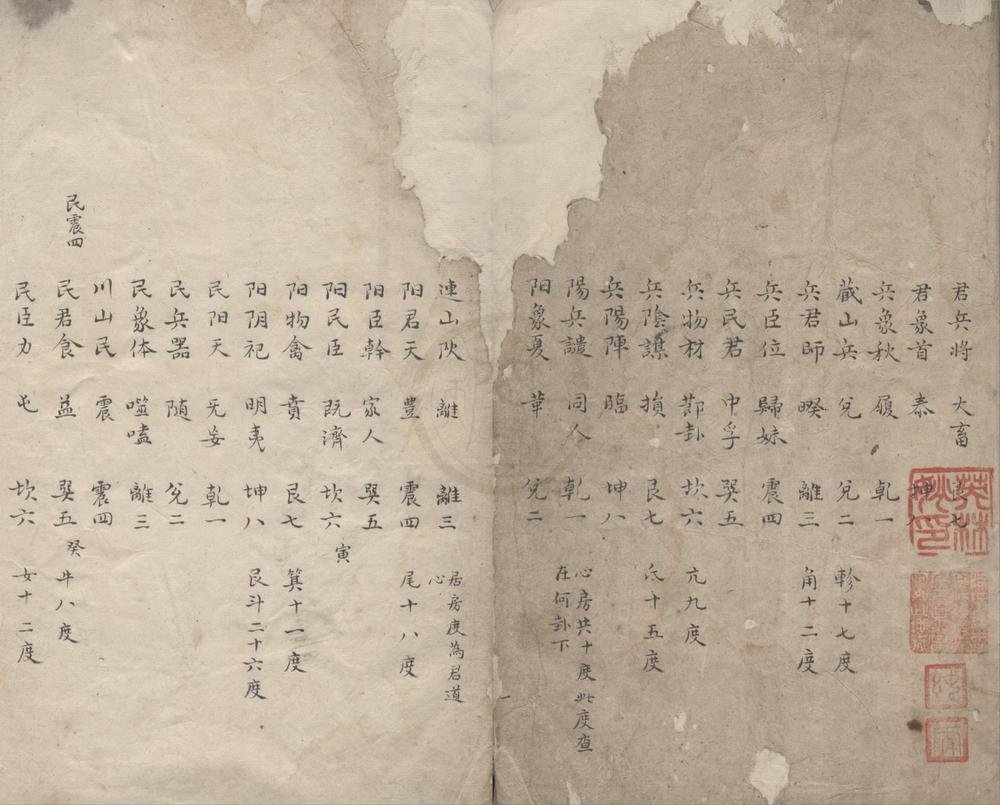 君兵將 大畜 艮七
君象首 泰 坤八
兵象秋 履 乾一
藏山兵 兌 兌二 軫十七度
兵君師 睽 離三 角十二度
兵臣位 歸妹 震四
兵民君 中孚 巽五
兵物材 節卦 坎六 亢九度
兵陰謀 損 艮七 氐十五度
兵陽陣 臨 坤八
陽兵譴 同人 乾一 心房共十度此度查
在何卦下
阳象夏 革 兌二
連山阳 離 離三 居房度為君道
心
阳君天 豊 震四 尾十八度
阳臣幹 家人 巽五
阳民臣 既濟 坎六 寅
阳物禽 賁 艮七 箕十一度
阳阴祀 明夷 坤八 艮斗二十六度
民阳天 无妄 乾一
民兵器 随 兌二
民象体 噬嗑 離三
川山民 震 震四
民震四
民君食 益 巽五 癸 牛八度
民臣力 屯 坎六 女十二度